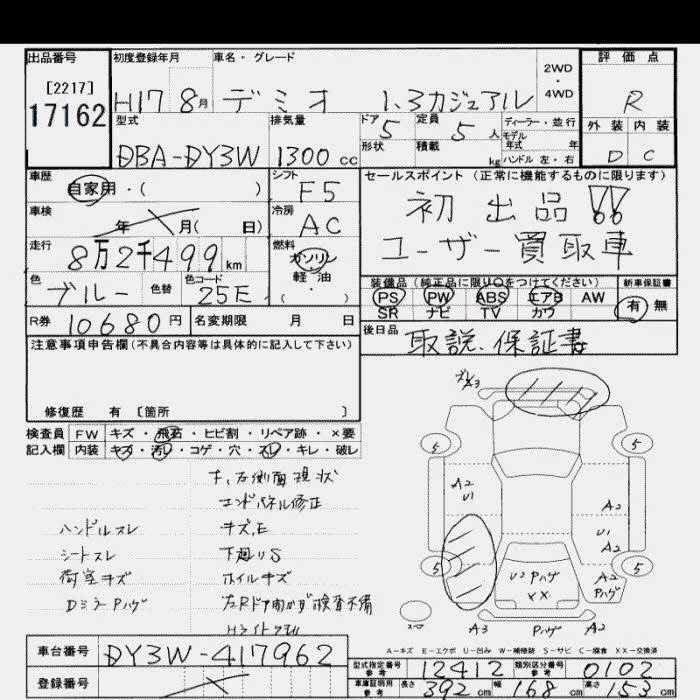 出品番号
[2217]
17162
初度登録年月
H17 8月
車名・グレード
デミオ 1.3カジュアル
2WD
・
4WD
評価点
R
外装 内装
D C
型式
DBA-DY3W
排気量
1300 cc
ドア 5
定員 5 人
形状
積載 kg
ディーラー・並行
モデル年式 年
ハンドル 左・右
車歴
自家用・( )
シフト
F5
車検
年 月( 日)
冷房
AC
走行
8万2千499km
燃料
ガソリン
軽・油
( )
色
ブルー 色替
色コード
25E
R券 10680円 名変期限 月 日
セールスポイント(正常に機能するものに限ります)
初出品!!
ユーザー買取車
装備品(純正品に限り○をつけてください)
PS PW ABS エアB AW
SR ナビ TV カワ
新車保証書
有 無
後日品
取説、保証書
注意事項申告欄(不具合内容等は具体的に記入して下さい)
修復歴 有 [箇所 ]
検査員 FW キズ・飛石・ヒビ割・リペア跡・×要
記入欄 内装 キズ・汚レ・コゲ・穴・スレ・キレ・破レ
左側面現状
エンドパネル修正
ハンドルスレ
キズ,E
シートスレ
下廻りS
荷室キズ
ホイルキズ
Dミラーハゲ
検査不備
5 5
A2
U1
A2
U1
A2
5 5
U2 Pハゲ
XX
A2
Pハゲ
A3 Pハゲ A2
A-キズ E-エクボ U-凹み W-補修跡 S-サビ C-腐食 XX-交換済
車台番号 DY3W-417962
登録番号
型式指定番号 参考 12412 類別区分番号 参考 0102
車庫証明用 参考 長さ 392 cm 幅 168 cm 高さ 153 cm